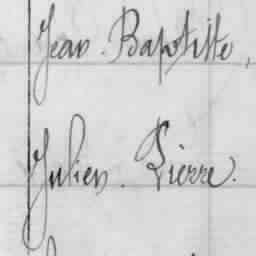 Jean Baptiste,
Julien. Pierre.